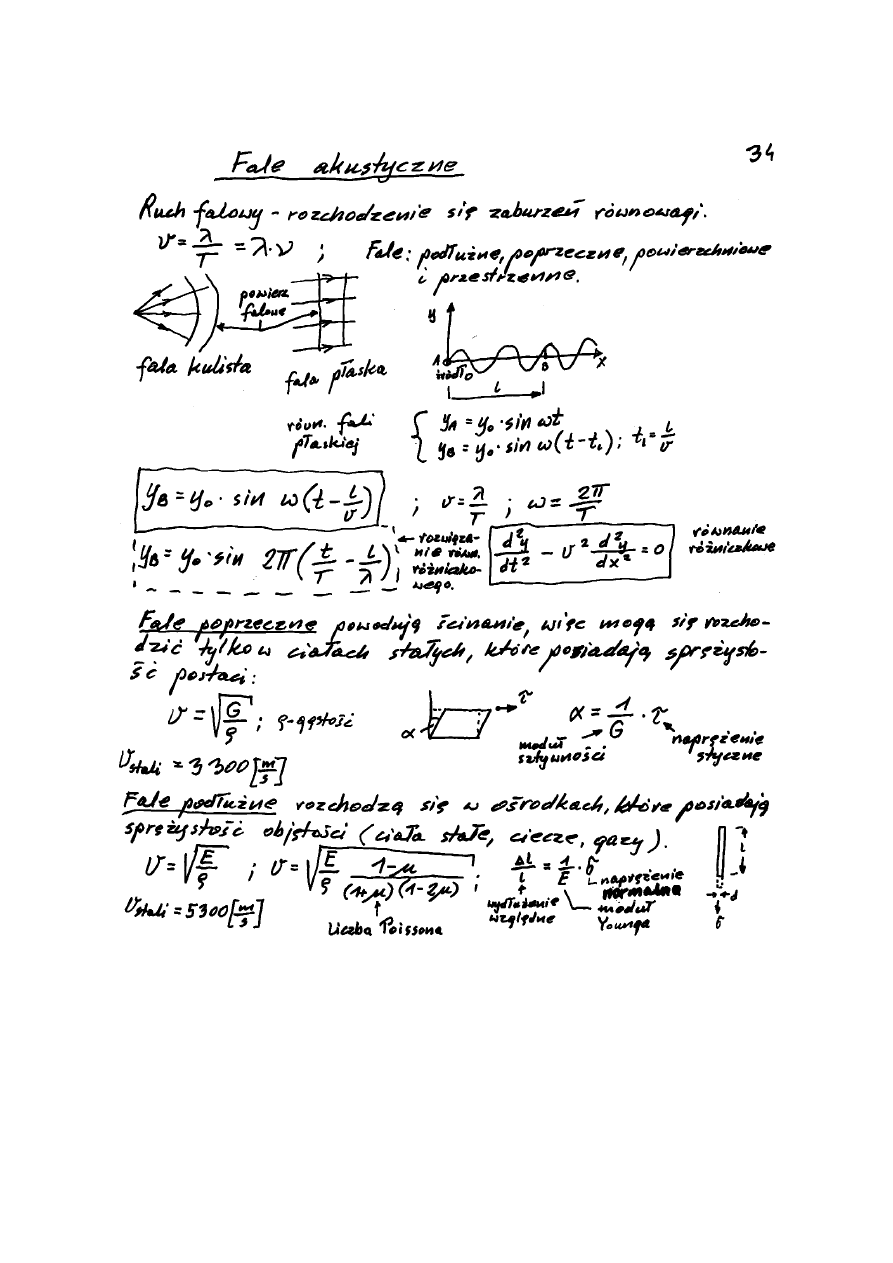 34
Fale akustyczne
Ruch falowy - rozchodzenie się zaburzeń równowagi.
v = λ/T = λ·ν ; Fale: podłużne, poprzeczne, powierzchniowe
i przestrzenne.
powierz.
falowe
fala kulista
fala płaska
y
A
źródło
B
x
l
równ. fali
płaskiej
{ y_A = y₀ · sin ωt
y_B = y₀ · sin ω(t - t₁) ; t₁ = l/v
y_B = y₀ · sin ω(t - l/v) ; v = λ/T ; ω = 2π/T
y_B = y₀ · sin 2π(t/T - l/λ)
← rozwiąza-
nie równ.
różniczko-
wego.
d²y/dt² - v² d²y/dx² = 0
równanie
różniczkowe
Fale poprzeczne powodują ścinanie, więc mogą się rozcho-
dzić tylko w ciałach stałych, które posiadają sprężysto-
ść postaci:
v = √(G/ρ) ; ρ - gęstość
α
τ
α = 1/G · τ
moduł
sztywności
naprężenie
styczne
v_stali = 3300 [m/s]
Fale podłużne rozchodzą się w ośrodkach, które posiadają
sprężystość objętości (ciała stałe, ciecze, gazy).
v = √(E/ρ) ; v = √(E/ρ (1-μ)/((1+μ)(1-2μ))) ;
Δl/l = 1/E · σ
naprężenie
normalne
wydłużenie
względne
moduł
Younga
l
d
σ
v_stali = 5300 [m/s]
Liczba Poissona